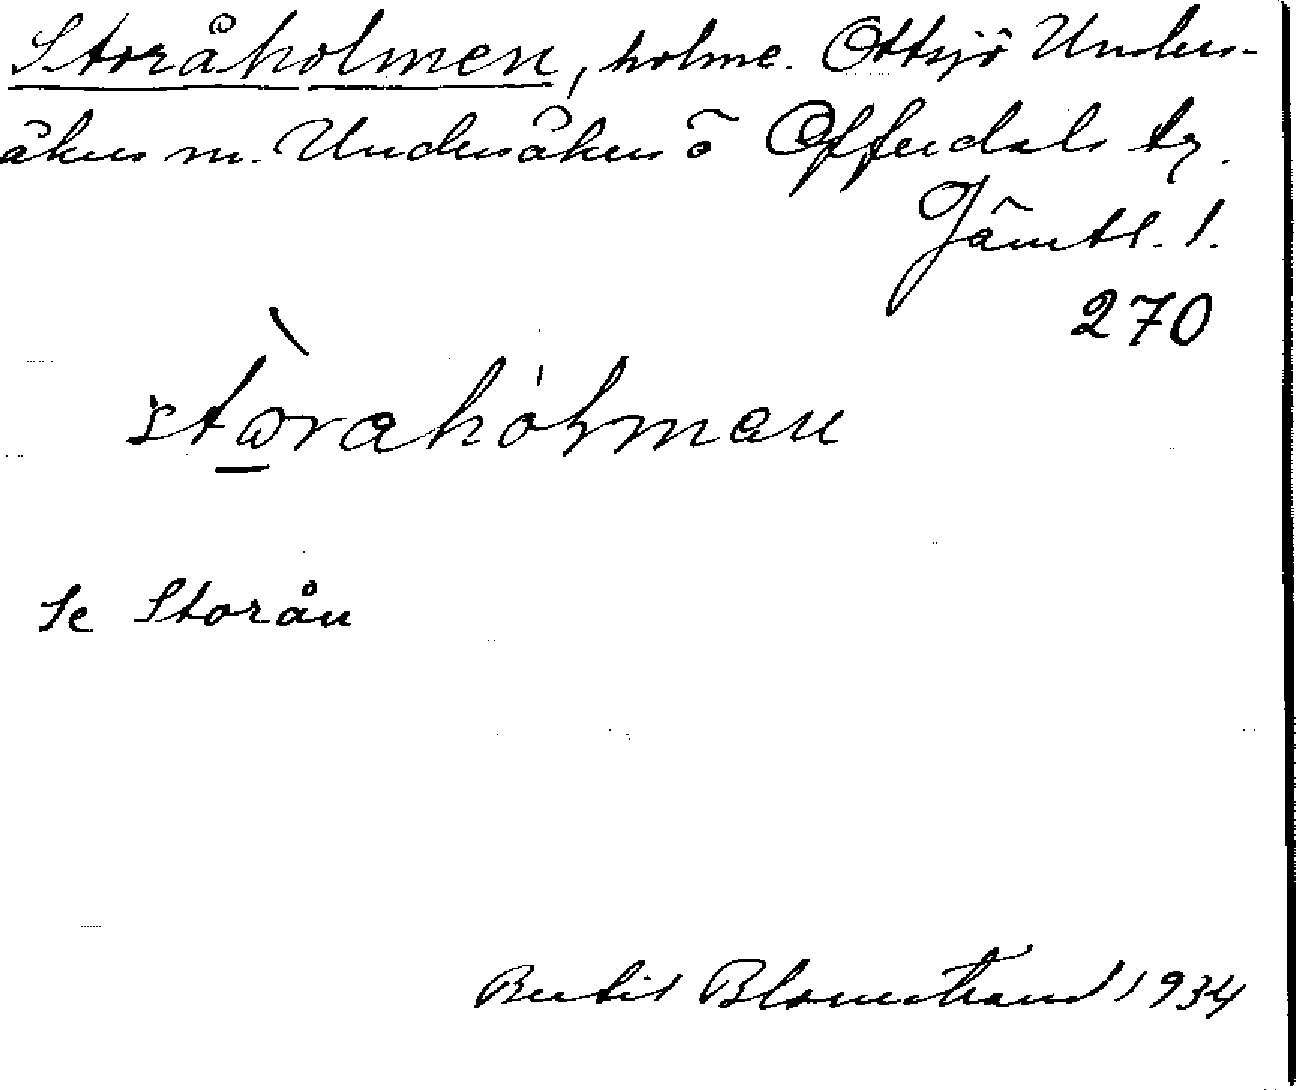 Storåholmen, holme. Ottsjö Unders-
åkers sn. Undersåkers o Offerdals tg.
Jämtl. l.
270
stòrahólman
Se Storån
Bertil Blomstrand 1934